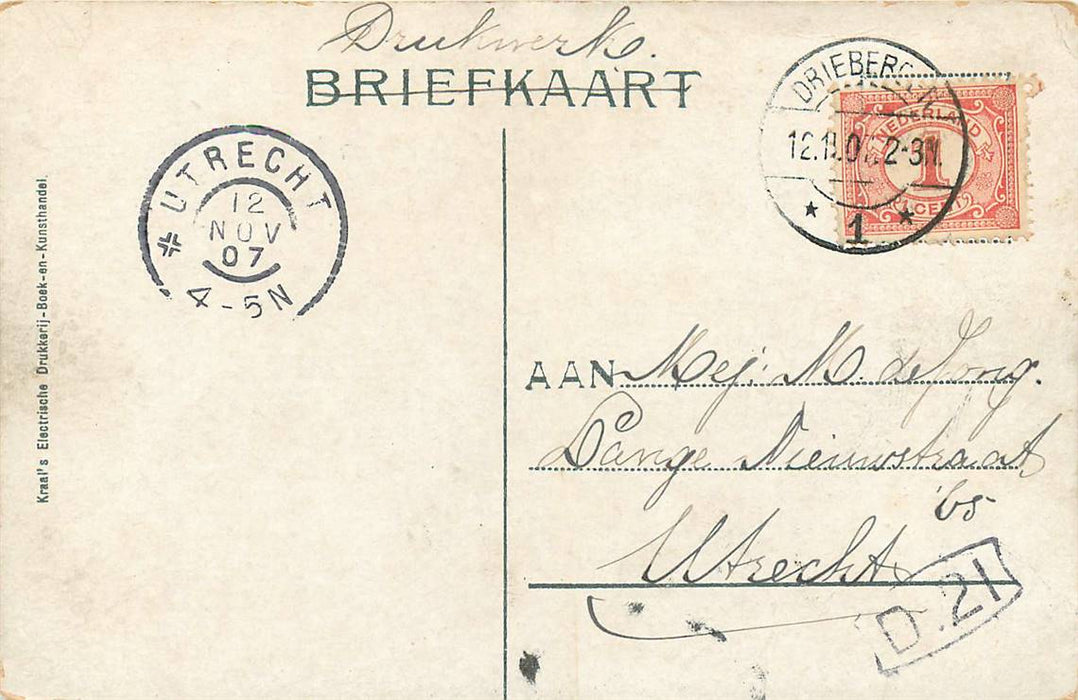 Drukwerk.
BRIEFKAART
DRIEBERGEN
12.11.07 2-3N.
1
NEDERLAND
1
CENT
UTRECHT
12
NOV
07
4-5N
Kraal's Electrische Drukkerij-Boek-en-Kunsthandel.
AAN Mej: M. de Jong.
Lange Nieuwstraat
bs
Utrecht
D.21